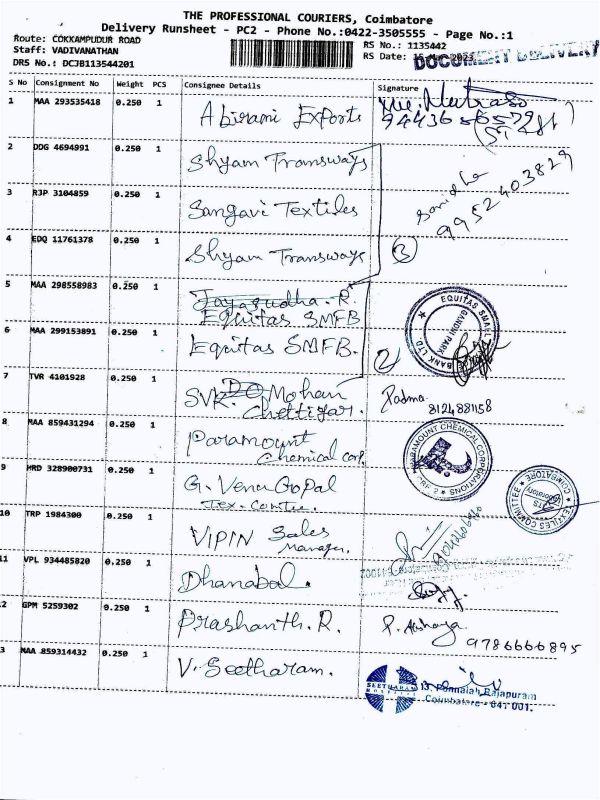 THE PROFESSIONAL COURIERS, Coimbatore
Delivery Runsheet - PC2 - Phone No.:0422-3505555 - Page No.:1
Route: COKKAMPUDUR ROAD
Staff: VADIVANATHAN
DRS No.: DCJB113544201
RS No.: 1135442
RS Date: 15 Mar 2023
DOCUMENT DELIVERY
S No Consignment No Weight PCS Consignee Details Signature
1 MAA 293535418 0.250 1 Abirami Exports
9443656579
2 DDG 4694991 0.250 1 Shyam Transways
3 RJP 3104859 0.250 1 Sangavi Textiles
9952403829
4 EDQ 11761378 0.250 1 Shyam Transways
3
5 MAA 298558983 0.250 1 Jayasudha. R.
Equitas SMFB
EQUITAS SMALL BANK LTD
GANDHI PARK
6 MAA 299153891 0.250 1 Equitas SMFB.
2
7 TVR 4101928 0.250 1 SVR. Mohan
Chettiyar.
Padma
8124881158
8 MAA 859431294 0.250 1 Paramount
Chemical corp.
PARAMOUNT CHEMICAL CORPORATIONS
9 MRD 328900731 0.250 1 G. Venu Gopal
TEXTILES COMMITTEE COIMBATORE
10 TRP 1984300 0.250 1 VIPIN Sales
Manager.
11 VPL 934485820 0.250 1 Dhanabal.
2 GPM 5259302 0.250 1 Prashanth. R. P. Akshaya
9786666895
3 MAA 859314432 0.250 1 V. Seetharam.
SEETHARAM HOSPITAL
13, Ponnaiah Rajapuram
Coimbatore - 641 001.